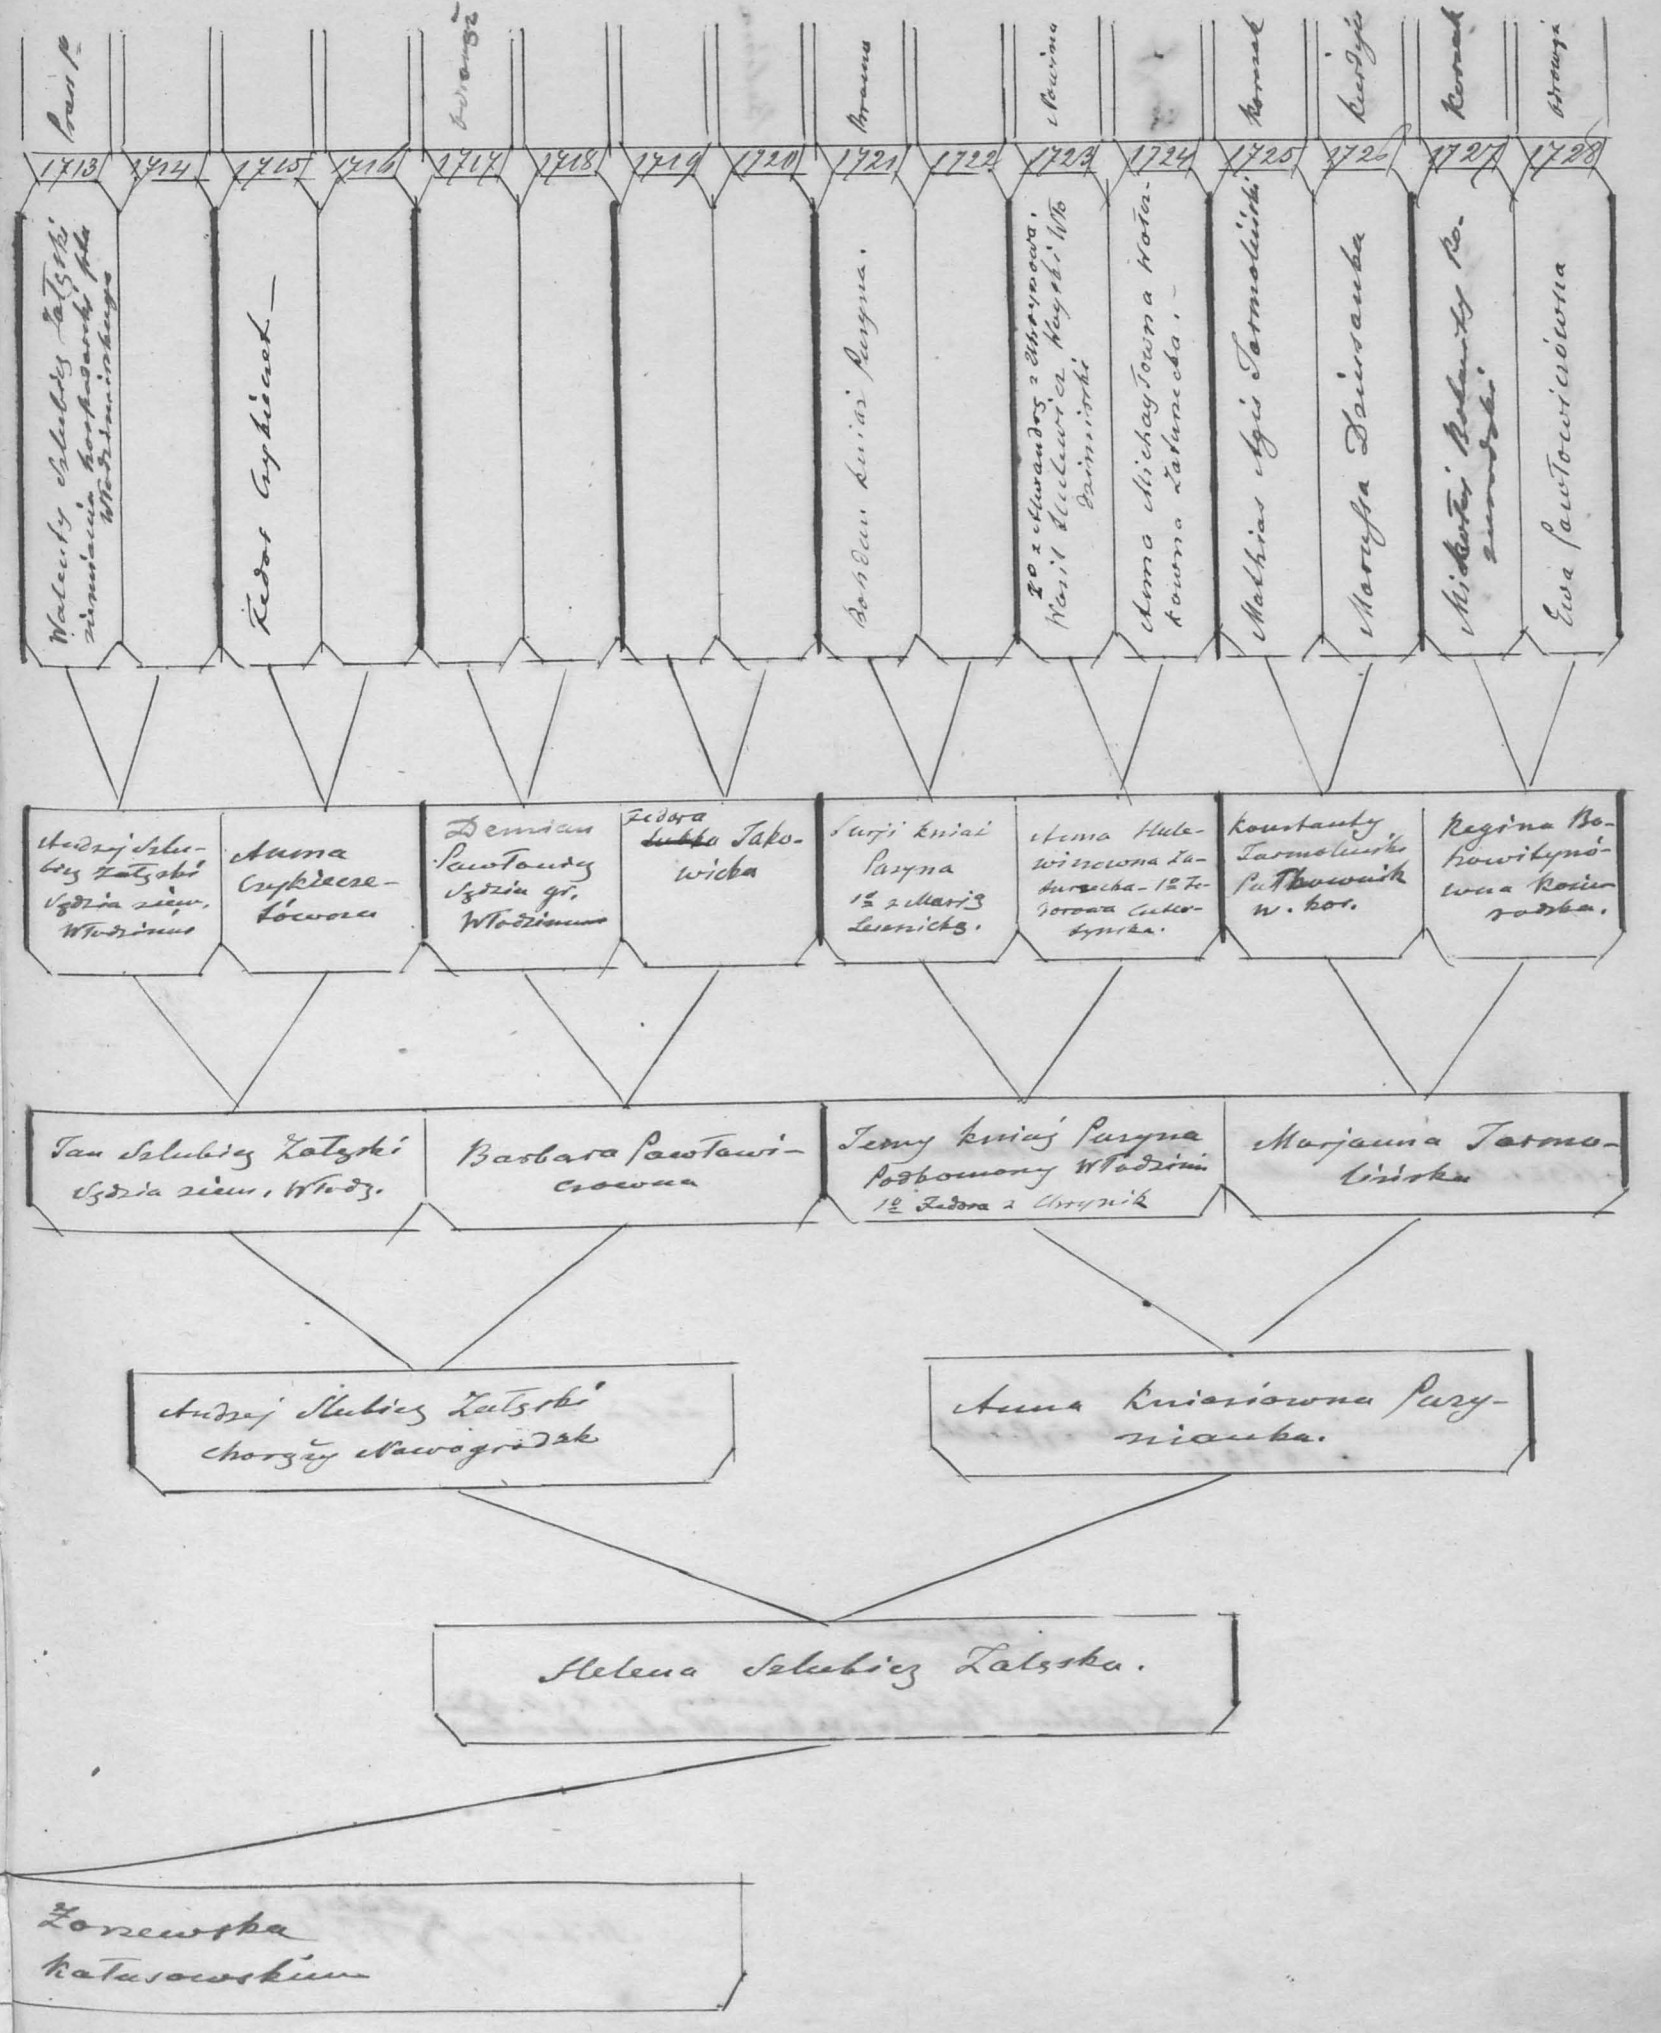 Korczak
Kierdeja
Korczak
1713 1714 1715 1716 1717 1718 1719 1720 1721 1722 1723 1724 1725 1726 1727 1728
Walenty Szlubicz Załęski
ziemianin hospodarski pttu
Włodzimirskiego
Fedor Czykieczet —
Bohdan kniaź Puzyna.
Wasil Hulewicz Woyski Wło
dzimirski
Anna Michayłowna Woło-
Zaturecka. —
Mathias Agis Jarmoliński
Marussa Dziusanka
Mikołaj
Ewa Pawłowiczówna
Andrzej Szlu-
bicz Załęski
Sędzia ziem.
Włodzimir
Anna
Czykiecze-
łówna
Demian
Pawłowicz
Sędzia gr.
Włodzimir
Fedora
Jako-
wicka
Jurji kniaź
Puzyna
1º z Marią
Lesnicką.
Anna Hule-
wiczowna Za-
turecka – 1º Fe-
dorowa
Konstanty
Jarmoliński
Pułkownik
w. kor.
Regina Bo-
howitynó-
wna Kozie-
radzka.
Jan Szlubicz Załęski
Sędzia ziem. Włodz.
Barbara Pawłowi-
czowna
Jerzy kniaź Puzyna
Podkomorzy Włodzimir
1º Fedora z Chrynik
Marjanna Jarmo-
lińska
Andrzej Szlubicz Załęski
Chorąży Nowogrodzk
Anna Kniaziowna Puzy-
nianka.
Helena Szlubicz Załęska.
Żorzewska
Kałusowskiem